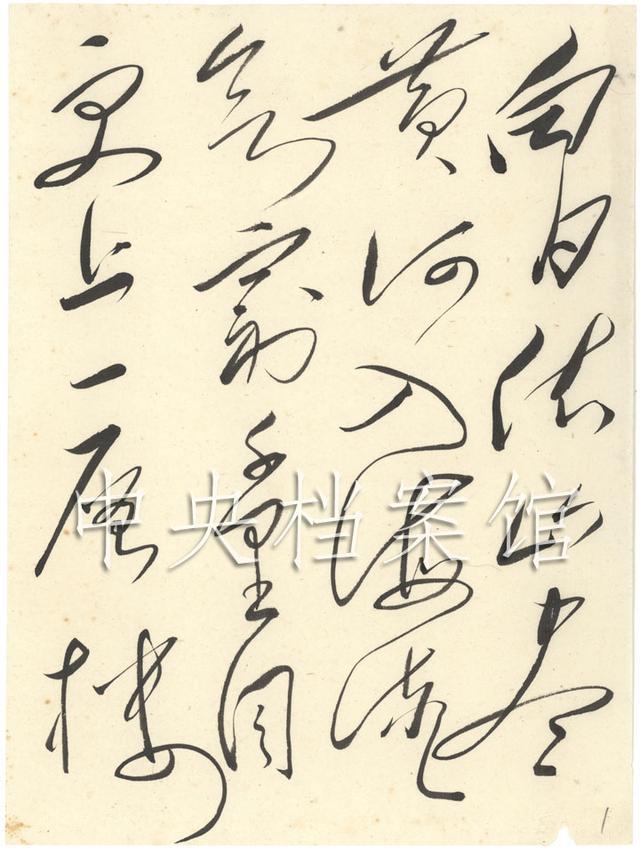 白日依山尽
黄河入海流
欲窮千里目
更上一層樓
中央档案馆
1